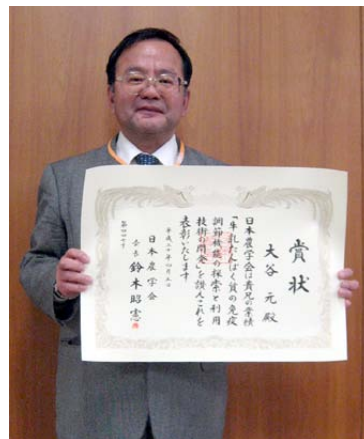 賞状
大谷 元 殿
日本農学会は貴兄の業績
「牛乳たんぱく質の免疫
調節機能の探索と利用
技術の開発」を讃えこれを
表彰いたします
平成二十年四月五日
日本農学会
会長 鈴木昭憲